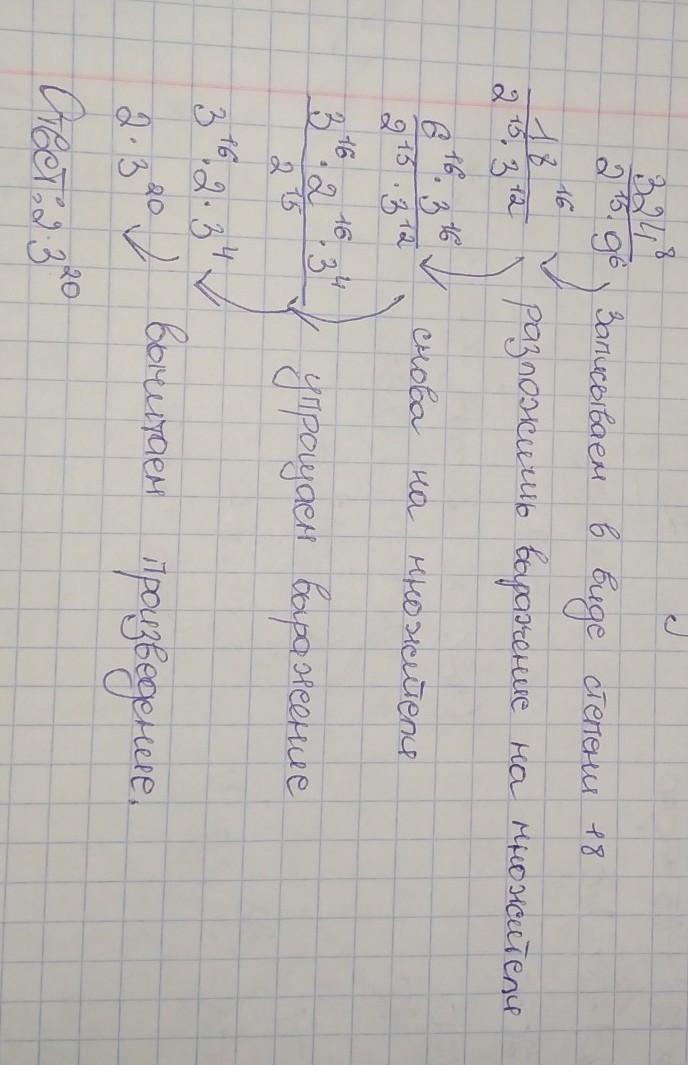 324⁸
2¹⁵·9⁶ записываем в виде степени 18
18¹⁶
2¹⁵·3¹² разложить выражение на множители
6¹⁶·3¹⁶
2¹⁵·3¹² снова на множители
3¹⁶·2¹⁶·3⁴
2¹⁵ упрощаем выражение
3¹⁶·2·3⁴
2·3²⁰ вычитаем произведение.
Ответ: 2·3²⁰